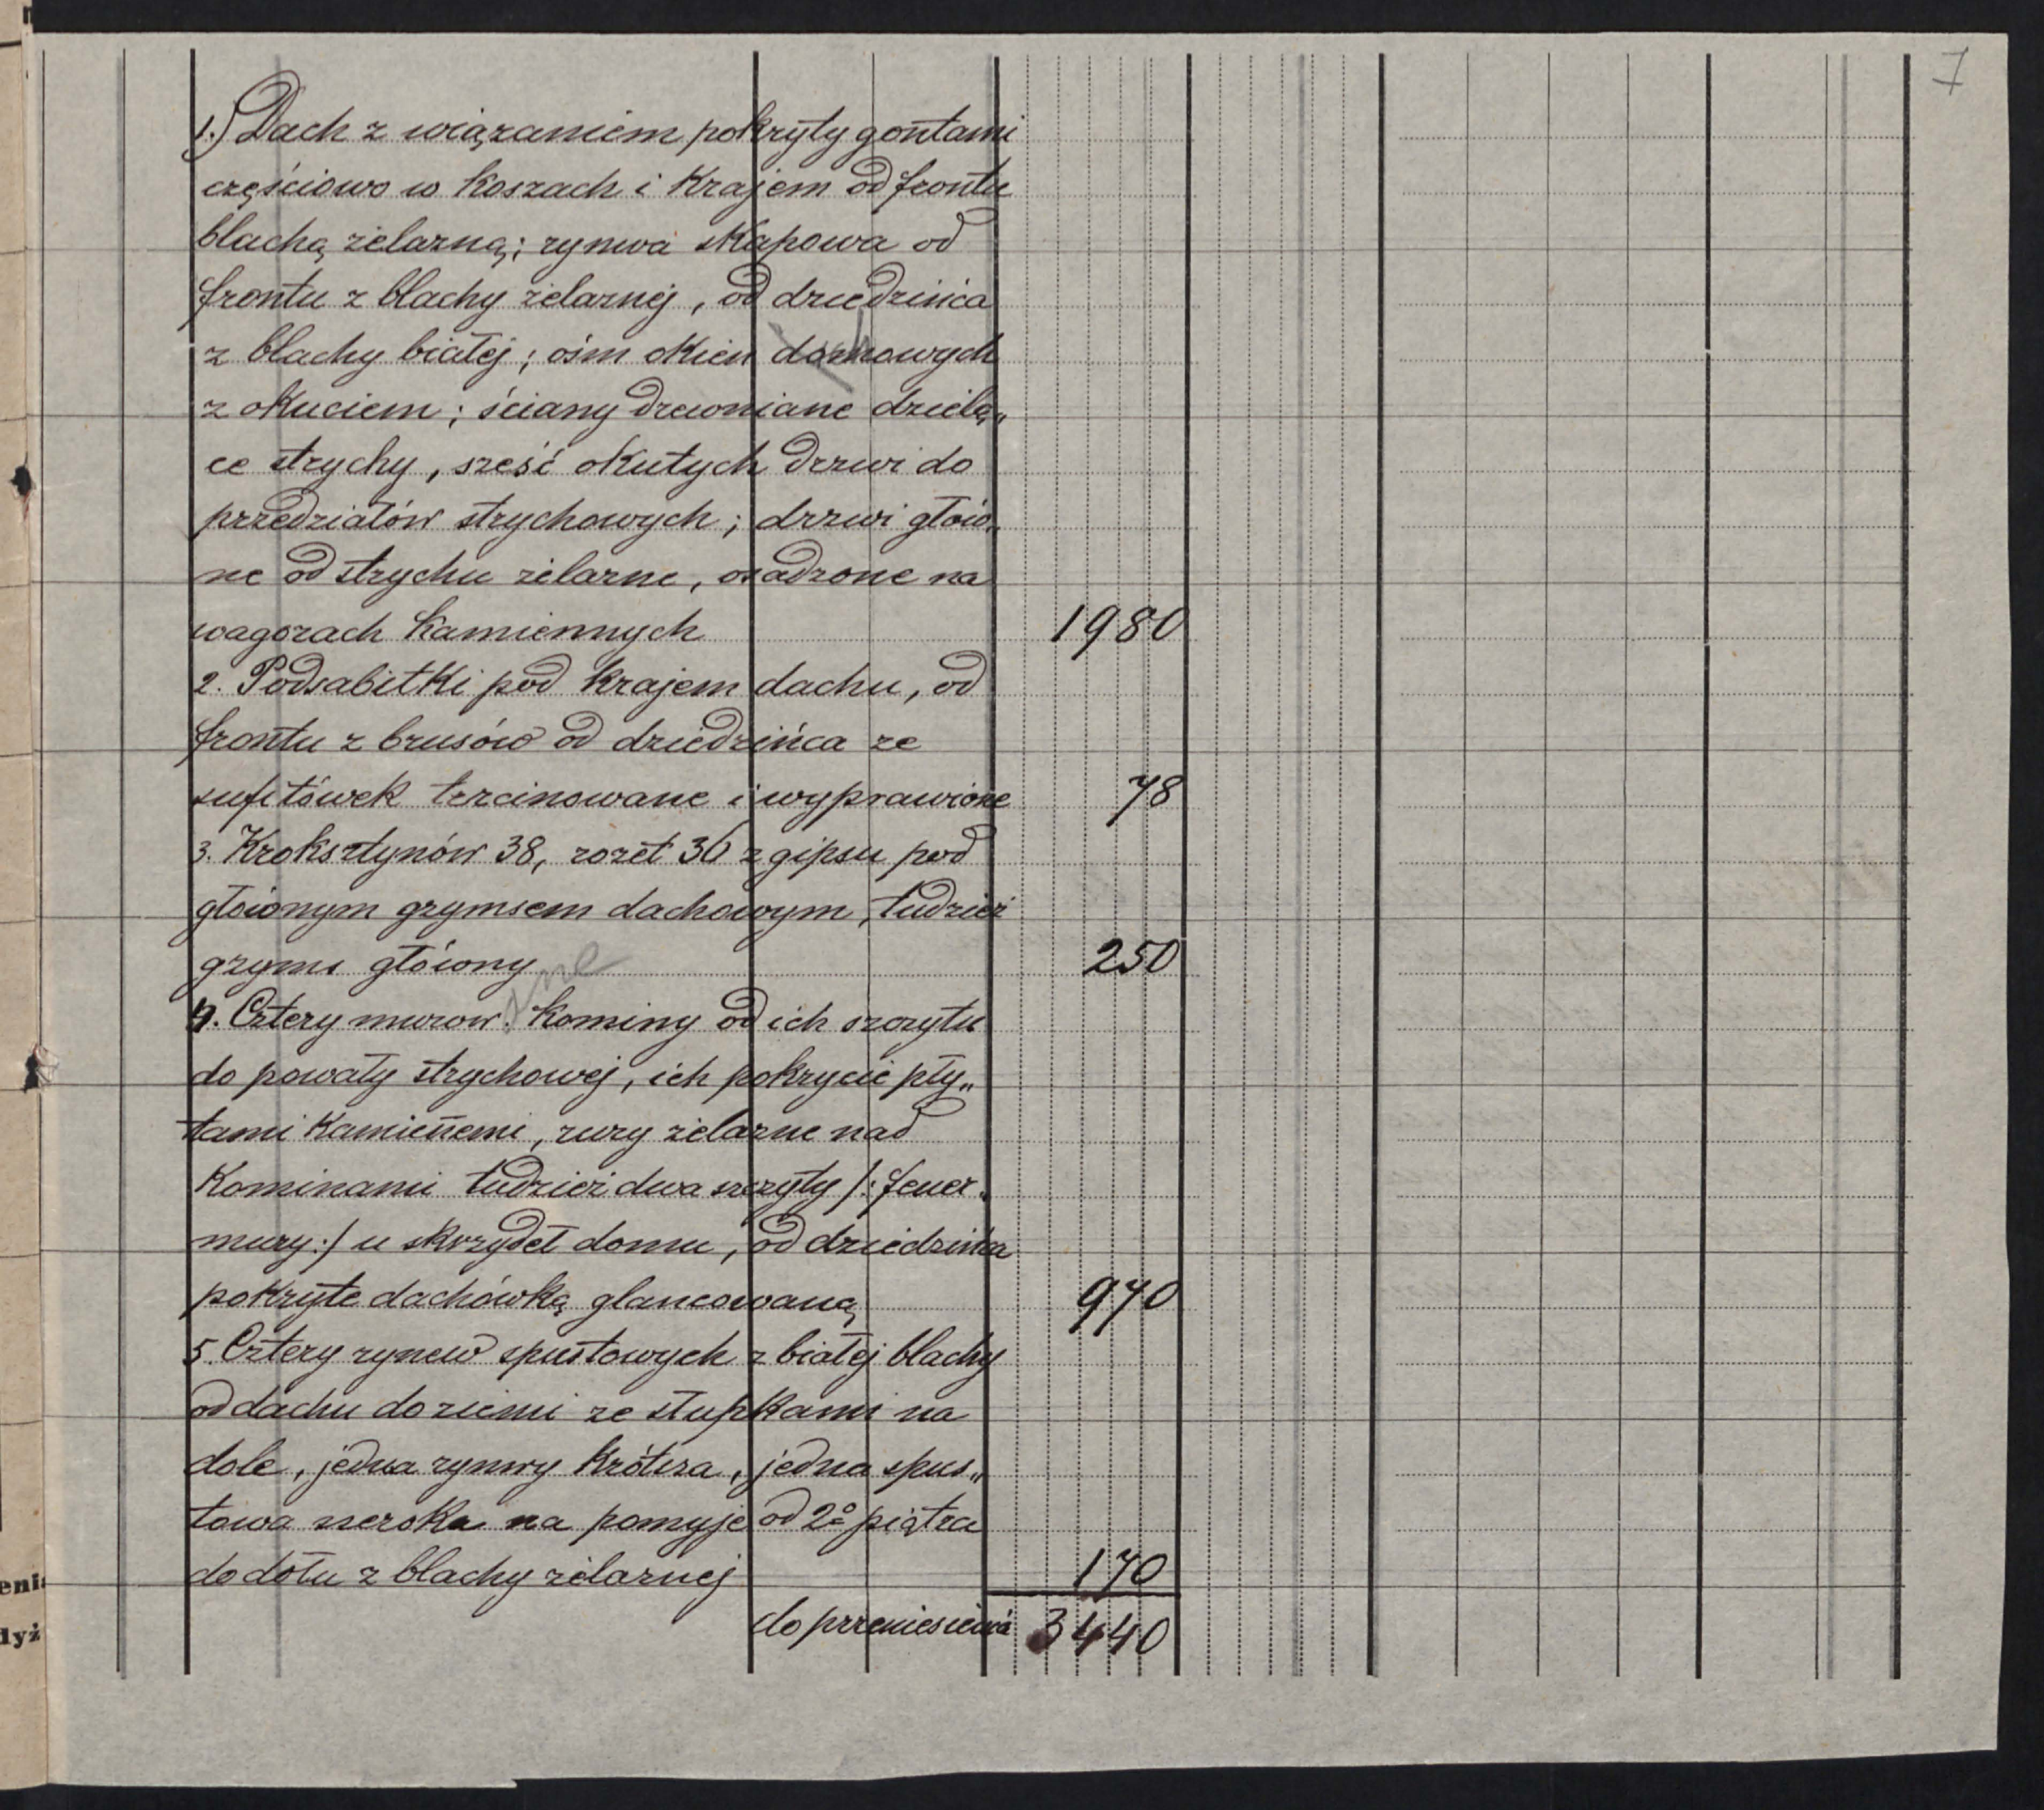 7
1.) Dach z wiązaniem pokryty gontami
częściowo w koszach i krajem od frontu
blachą żelazną; rynwa okapowa od
frontu z blachy żelaznej, od dziedzińca
z blachy białej; ośm okien domowych
z okuciem; ściany drewniane dzielą„
ce strychy, sześć okutych drzwi do
przedziałów strychowych; drzwi głów„
ne od strychu żelazne, osadzone na
wagorach kamiennych 1980
2. Podsabitki pod krajem dachu, od
frontu z brusów od dziedzińca ze
sufitówek trzcinowane i wyprawione 78
3. Kroksztynów 38, rozet 36 z gipsu pod
głównym grzymsem dachowym, tudzież
grzyms główny 250
4. Cztery murow. kominy od ich szczytu
do powały strychowej, ich pokrycie pły„
tami kamieñemi, rury żelazne nad
kominami tudzież dwa szczyty /: feuer„
mury :/ u skrzydeł domu, od dziedzińca
pokryte dachówką glancowaną 970
5. Cztery rynew spustowych z białej blachy
od dachu do ziemi ze stupkami na
dole, jedna rynwy krótsza, jedna spus„
towa szeroka na pomyje od 2º piątra
do dołu z blachy żelaznej 170
do przeniesienia 3440
eni
dyż